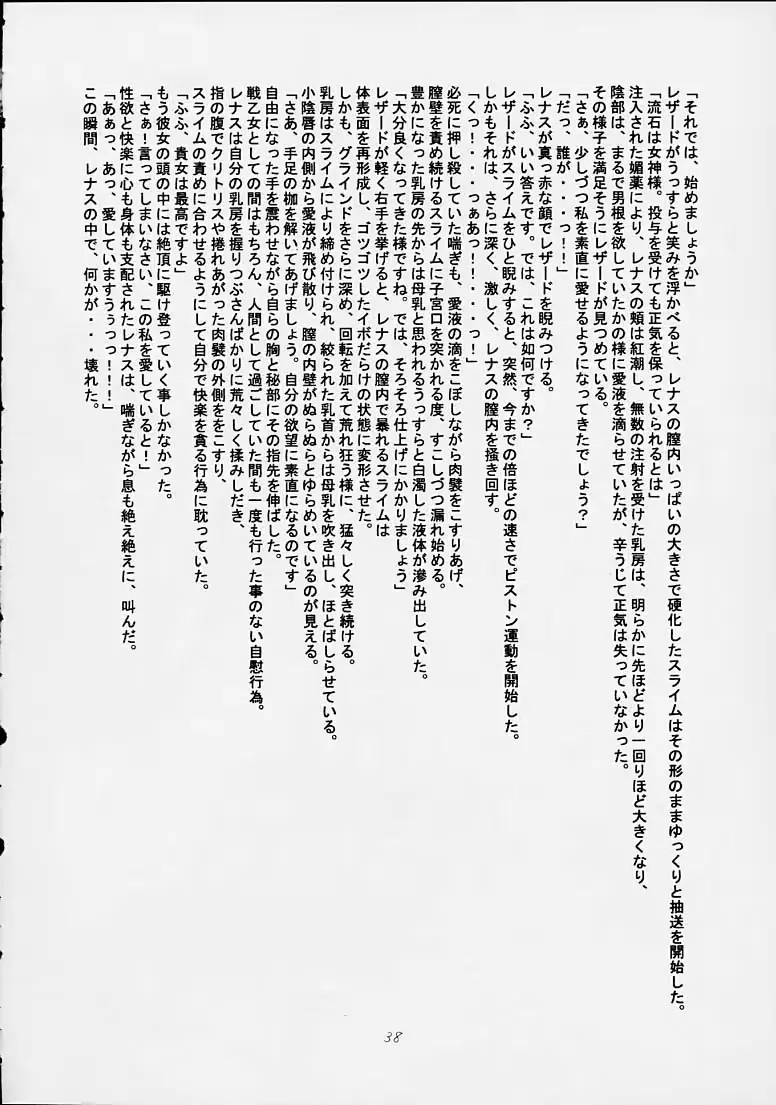 「それでは、始めましょうか」
レザードがうっすらと笑みを浮かべると、レナスの膣内いっぱいの大きさで硬化したスライムはその形のままゆっくりと抽送を開始した。
「流石は女神様。投与を受けても正気を保っていられるとは」
注入された媚薬により、レナスの頬は紅潮し、無数の注射を受けた乳房は、明らかに先ほどより一回りほど大きくなり、
陰部は、まるで男根を欲していたかの様に愛液を滴らせていたが、辛うじて正気は失っていなかった。
その様子を満足そうにレザードが見つめている。
「さぁ、少しづつ私を素直に愛せるようになってきたでしょう?」
「だっ、誰が・・・っ!!」
レナスが真っ赤な顔でレザードを睨みつける。
「ふふ、いい答えです。では、これは如何ですか?」
レザードがスライムをひと睨みすると、突然、今までの倍ほどの速さでピストン運動を開始した。
しかもそれは、さらに深く、激しく、レナスの膣内を掻き回す。
「くっ!・・・っぁあっ!!・・・っ!」
必死に押し殺していた喘ぎも、愛液の滴をこぼしながら肉襞をこすりあげ、
膣壁を責め続けるスライムに子宮口を突かれる度、すこしづつ漏れ始める。
豊かになった乳房の先からは母乳と思われるうっすらと白濁した液体が滲み出していた。
「大分良くなってきた様ですね。では、そろそろ仕上げにかかりましょう」
レザードが軽く右手を挙げると、レナスの膣内で暴れるスライムは
体表面を再形成し、ゴツゴツしたイボだらけの状態に変形させた。
しかも、グラインドをさらに深め、回転を加えて荒れ狂う様に、猛々しく突き続ける。
乳房はスライムにより締め付けられ、絞られた乳首からは母乳を吹き出し、ほとばしらせている。
小陰唇の内側から愛液が飛び散り、膣の内壁がぬらぬらとゆらめいているのが見える。
「さあ、手足の枷を解いてあげましょう。自分の欲望に素直になるのです」
自由になった手を震わせながら自らの胸と秘部にその指先を伸ばした。
戦乙女としての間はもちろん、人間として過ごしていた間も一度も行った事のない自慰行為。
レナスは自分の乳房を握りつぶさんばかりに荒々しく揉みしだき、
指の腹でクリトリスや捲れあがった肉襞の外側ををこすり、
スライムの責めに合わせるようにして自分で快楽を貪る行為に耽っていた。
「ふふ、貴女は最高ですよ」
もう彼女の頭の中には絶頂に駆け登っていく事しかなかった。
「さぁ!言ってしまいなさい、この私を愛していると!」
性欲と快楽に心も身体も支配されたレナスは、喘ぎながら息も絶え絶えに、叫んだ。
「あぁっ、あっ、愛していますうぅっっ!!!」
この瞬間、レナスの中で、何かが・・・壊れた。
38